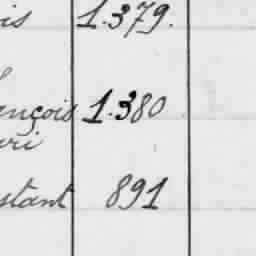 is 1.379.
ançois 1.380
ri
stant 891